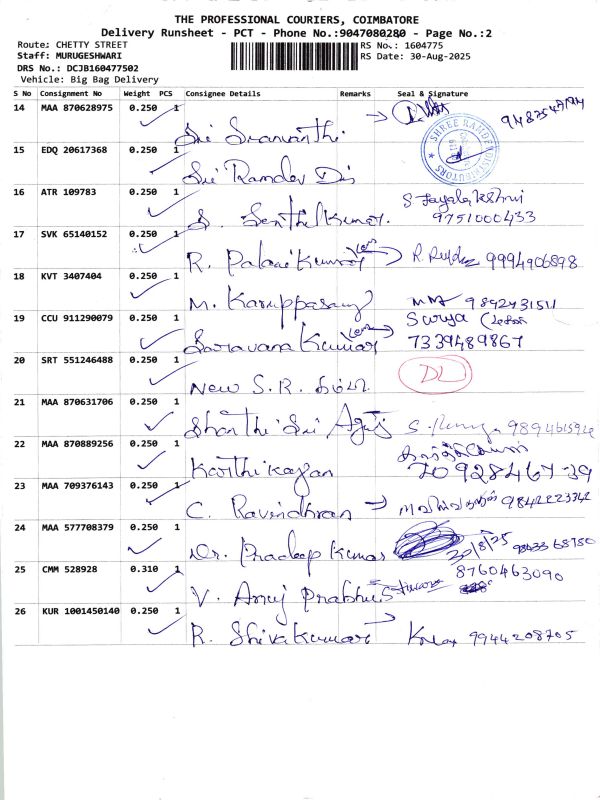 THE PROFESSIONAL COURIERS, COIMBATORE
Delivery Runsheet - PCT - Phone No.:9047080280 - Page No.:2
Route: CHETTY STREET
Staff: MURUGESHWARI
DRS No.: DCJB160477502
Vehicle: Big Bag Delivery
RS No.: 1604775
RS Date: 30-Aug-2025
S No Consignment No Weight PCS Consignee Details Remarks Seal & Signature
14 MAA 870628975 0.250 1 Sri Sravanthi
15 EDQ 20617368 0.250 1 Sri Ramdev Dis
SHREE RAMDEV DISTRIBUTORS
16 ATR 109783 0.250 1 S. Senthil Kumar. S. Jayalakshmi
9751000433
17 SVK 65140152 0.250 1 R. Palani Kumar 9994906898
18 KVT 3407404 0.250 1 M. Karuppasamy 9892431511
19 CCU 911290079 0.250 1 Saravana Kumar Surya
7339489867
20 SRT 551246488 0.250 1 New S.R. DL
21 MAA 870631706 0.250 1 Shanthi Sri Agnj
22 MAA 870889256 0.250 1 Karthikayan 70 928467 39
23 MAA 709376143 0.250 1 C. Ravindhran 9842223342
24 MAA 577708379 0.250 1 Dr. Pradeep Kumar 30/8/25
25 CMM 528928 0.310 1 V. Anuj Prabhu 8760463090
26 KUR 1001450140 0.250 1 R. Shiva Kumar 9944208705